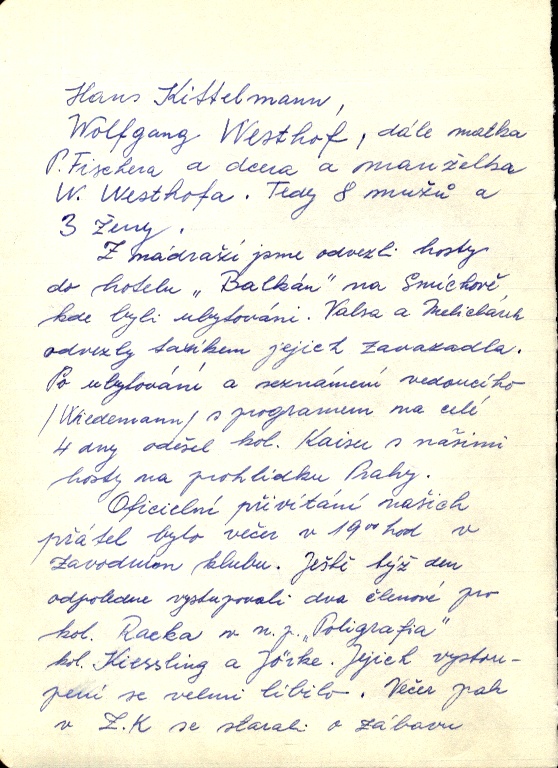 Hans Kittelmann,
Wolfgang Westhof, dále matka
P. Fischera a dcera a manželka
W. Westhofa. Tedy 8 mužů a
3 ženy.
Z nádraží jsme odvezli hosty
do hotelu „Balkán" na Smíchově
kde byli ubytováni. Valsa a Melichárek
odvezly taxíkem jejich zavazadla.
Po ubytování a seznámení vedoucího
/Wiedemann/ s programem na celé
4 dny odešel kol. Kaiser s našimi
hosty na prohlídku Prahy.
Oficielní přivítání našich
přátel bylo večer v 19⁰⁰ hod v
Závodním klubu. Ještě týž den
odpoledne vystupovali dva členové pro
kol. Racka v n.p. „Poligrafia"
kol. Kiessling a Jörke. Jejich vystou-
pení se velmi líbilo. Večer pak
v Z.K se starali o zábavu